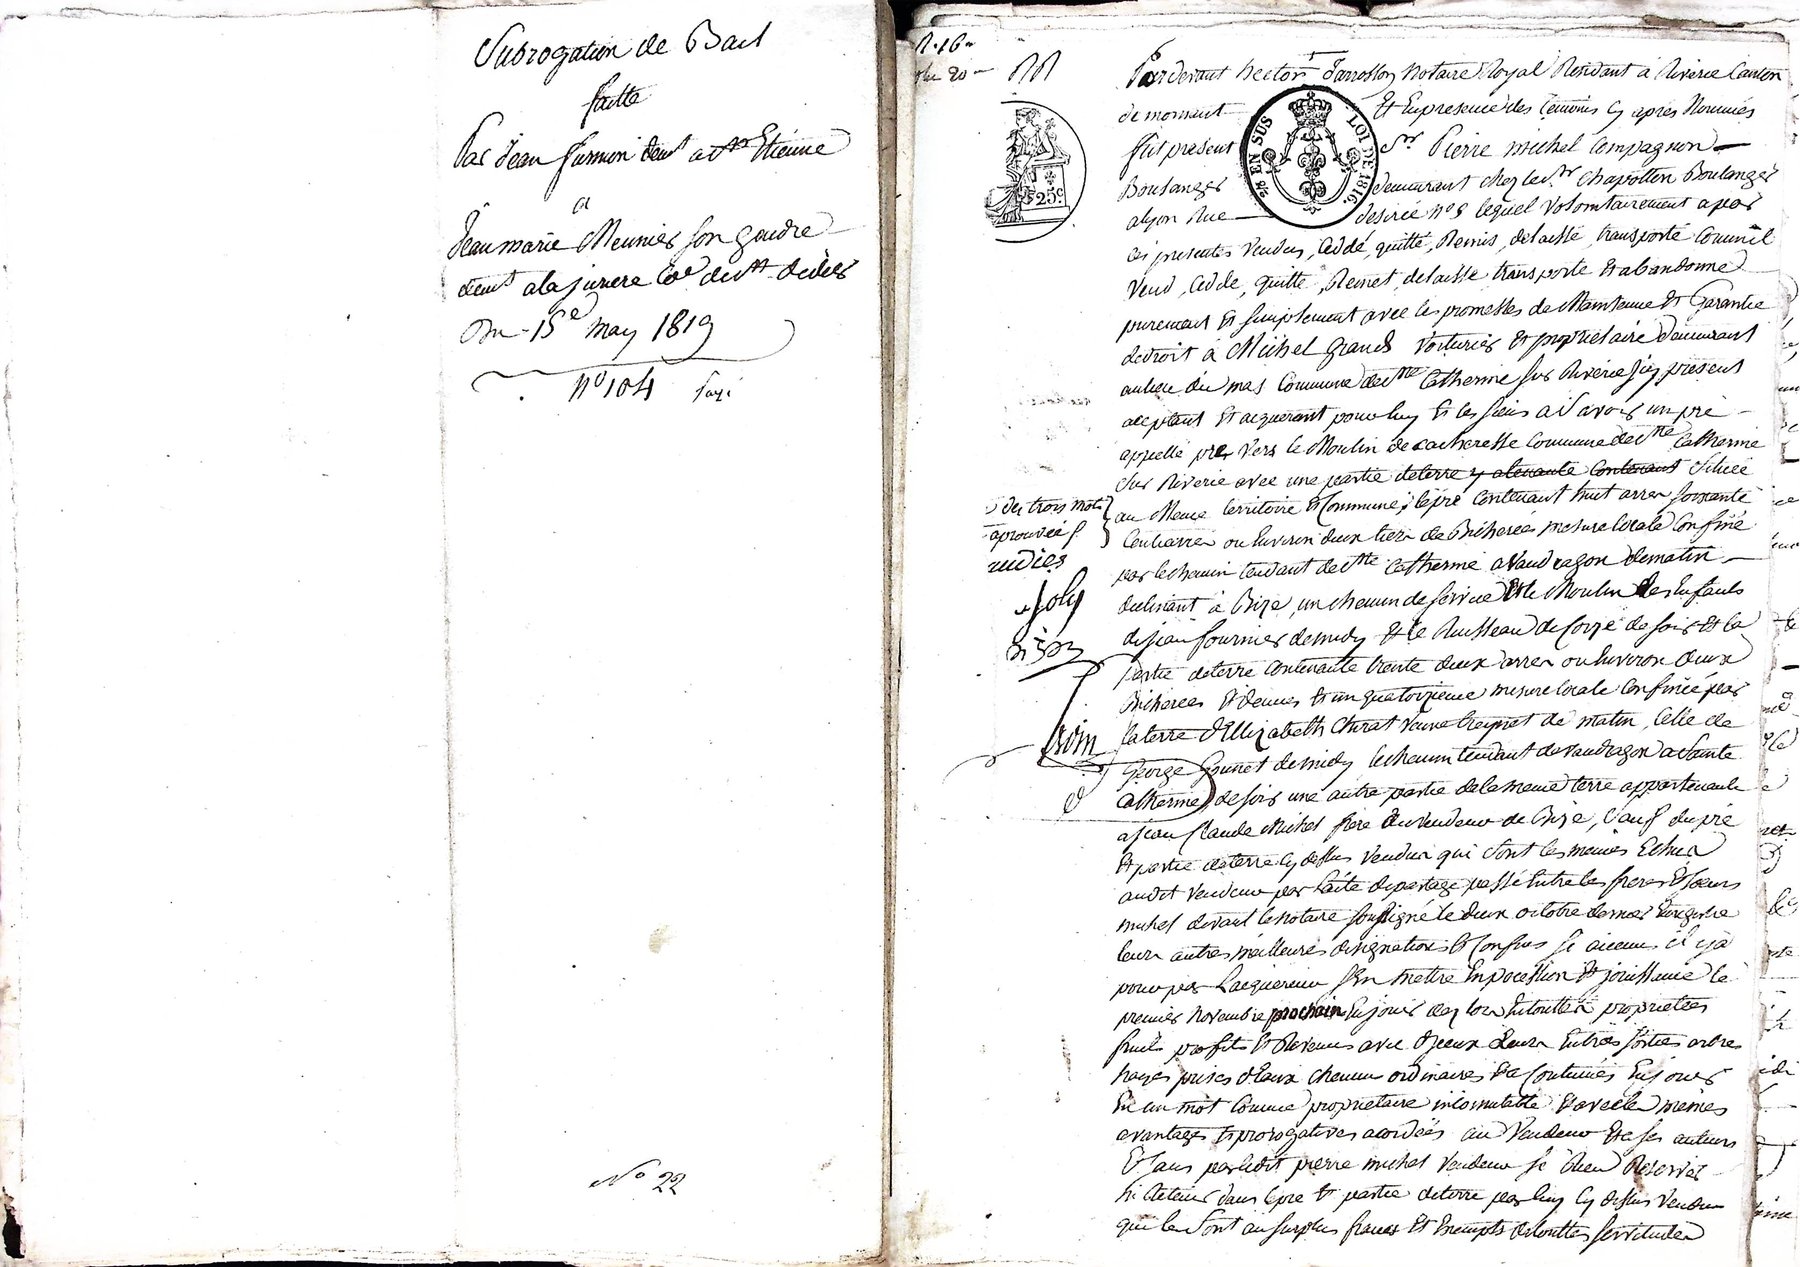 Subrogation de Bail
faitte
Par Jean furnion demt a st Etienne
a
Jean marie Meunier son gendre
demt a la jurere Coe de st didier
Du 15e may 1819
no 104
No 22
R. 16
25c.
EN SUS
LOI DE 1816.
Pardevant hector Jarrosson Notaire Royal Residant à Riverie Canton
de mornant Et En presence des temoins Cy après Nommés
fut present Sr Pierre michel Compagnon
Boulanger demeurant chez le Sr Chapotton Boulanger
a lyon Rue desirée no 9 lequel volontairement a par
Ces presentes vendu, Ceddé, quitté, Remis, delaissé, transporté Comme il
vend, Cedde, quitte, Remet, delaisse transporte et abandonne
purement et simplement avec les promesses de Maintenue et Garantie
de droit à Michel Grand voiturier et proprietaire demeurant
au lieu du mas Commune de Ste Catherine sur Riverie icy present
acceptant et acquerant pour luy et les siens a savoir un pré
appellé pré vers le Moulin de cacheresse Commune de Ste Catherine
sur Riverie avec une partie de terre y atenante contenant située
au Meme territoire et Commune, le pré contenant huit arres soixante
Centiarres ou Environ deux tiers de Bicherées mesure locale Confiné
par le chemin tendant de Ste Catherine a Vaudragon de matin
declinant à Bize, un chemin de service et le Moulin des Enfants
de jean fournier de midy et le Ruisseau de Corze de soir et la
partie de terre contenante trente deux arres ou Environ deux
Bicherées et demies et un quatorzieme mesure locale confinée par
la terre d'Elizabeth Churat veuve Crepet de matin, Celle de
George Gounet de midy le chemin tendant de Vaudragon a Sainte
Catherine de soir une autre partie de la meme terre appartenante
a jean Claude Michel frere du vendeur de Bize, Sauf du pré
et partie de terre Cy dessus vendus qui sont les mêmes Echus
audit vendeur par l'acte de partage passé Entre les freres et soeurs
michel devant le notaire soussigné le deux octobre dernier Enregistré
leurs autres meilleures designations et Confins si aucuns il y à
pour par l'acquereur s'En mettre En possession et jouissance le
premier Novembre prochain En jouir dez lors En toutte proprietées
fruits profits et Revenus avec d'Iceux leurs Entrées sorties arbres
hayes prises d'Eaux chemin ordinaires et a Coutumés En jouir
En un mot Comme proprietaire incomutable et avec les mêmes
avantages et prerogatives acordées au Vendeur et a ses auteurs
Et sans par ledit pierre michel vendeur se Rien Reserver
ni Retenir dans le pré et partie de terre par luy Cy dessus vendus
qui le sont au surplus francs et Exempts de touttes servitudes
des trois mots
aprouvée
joly